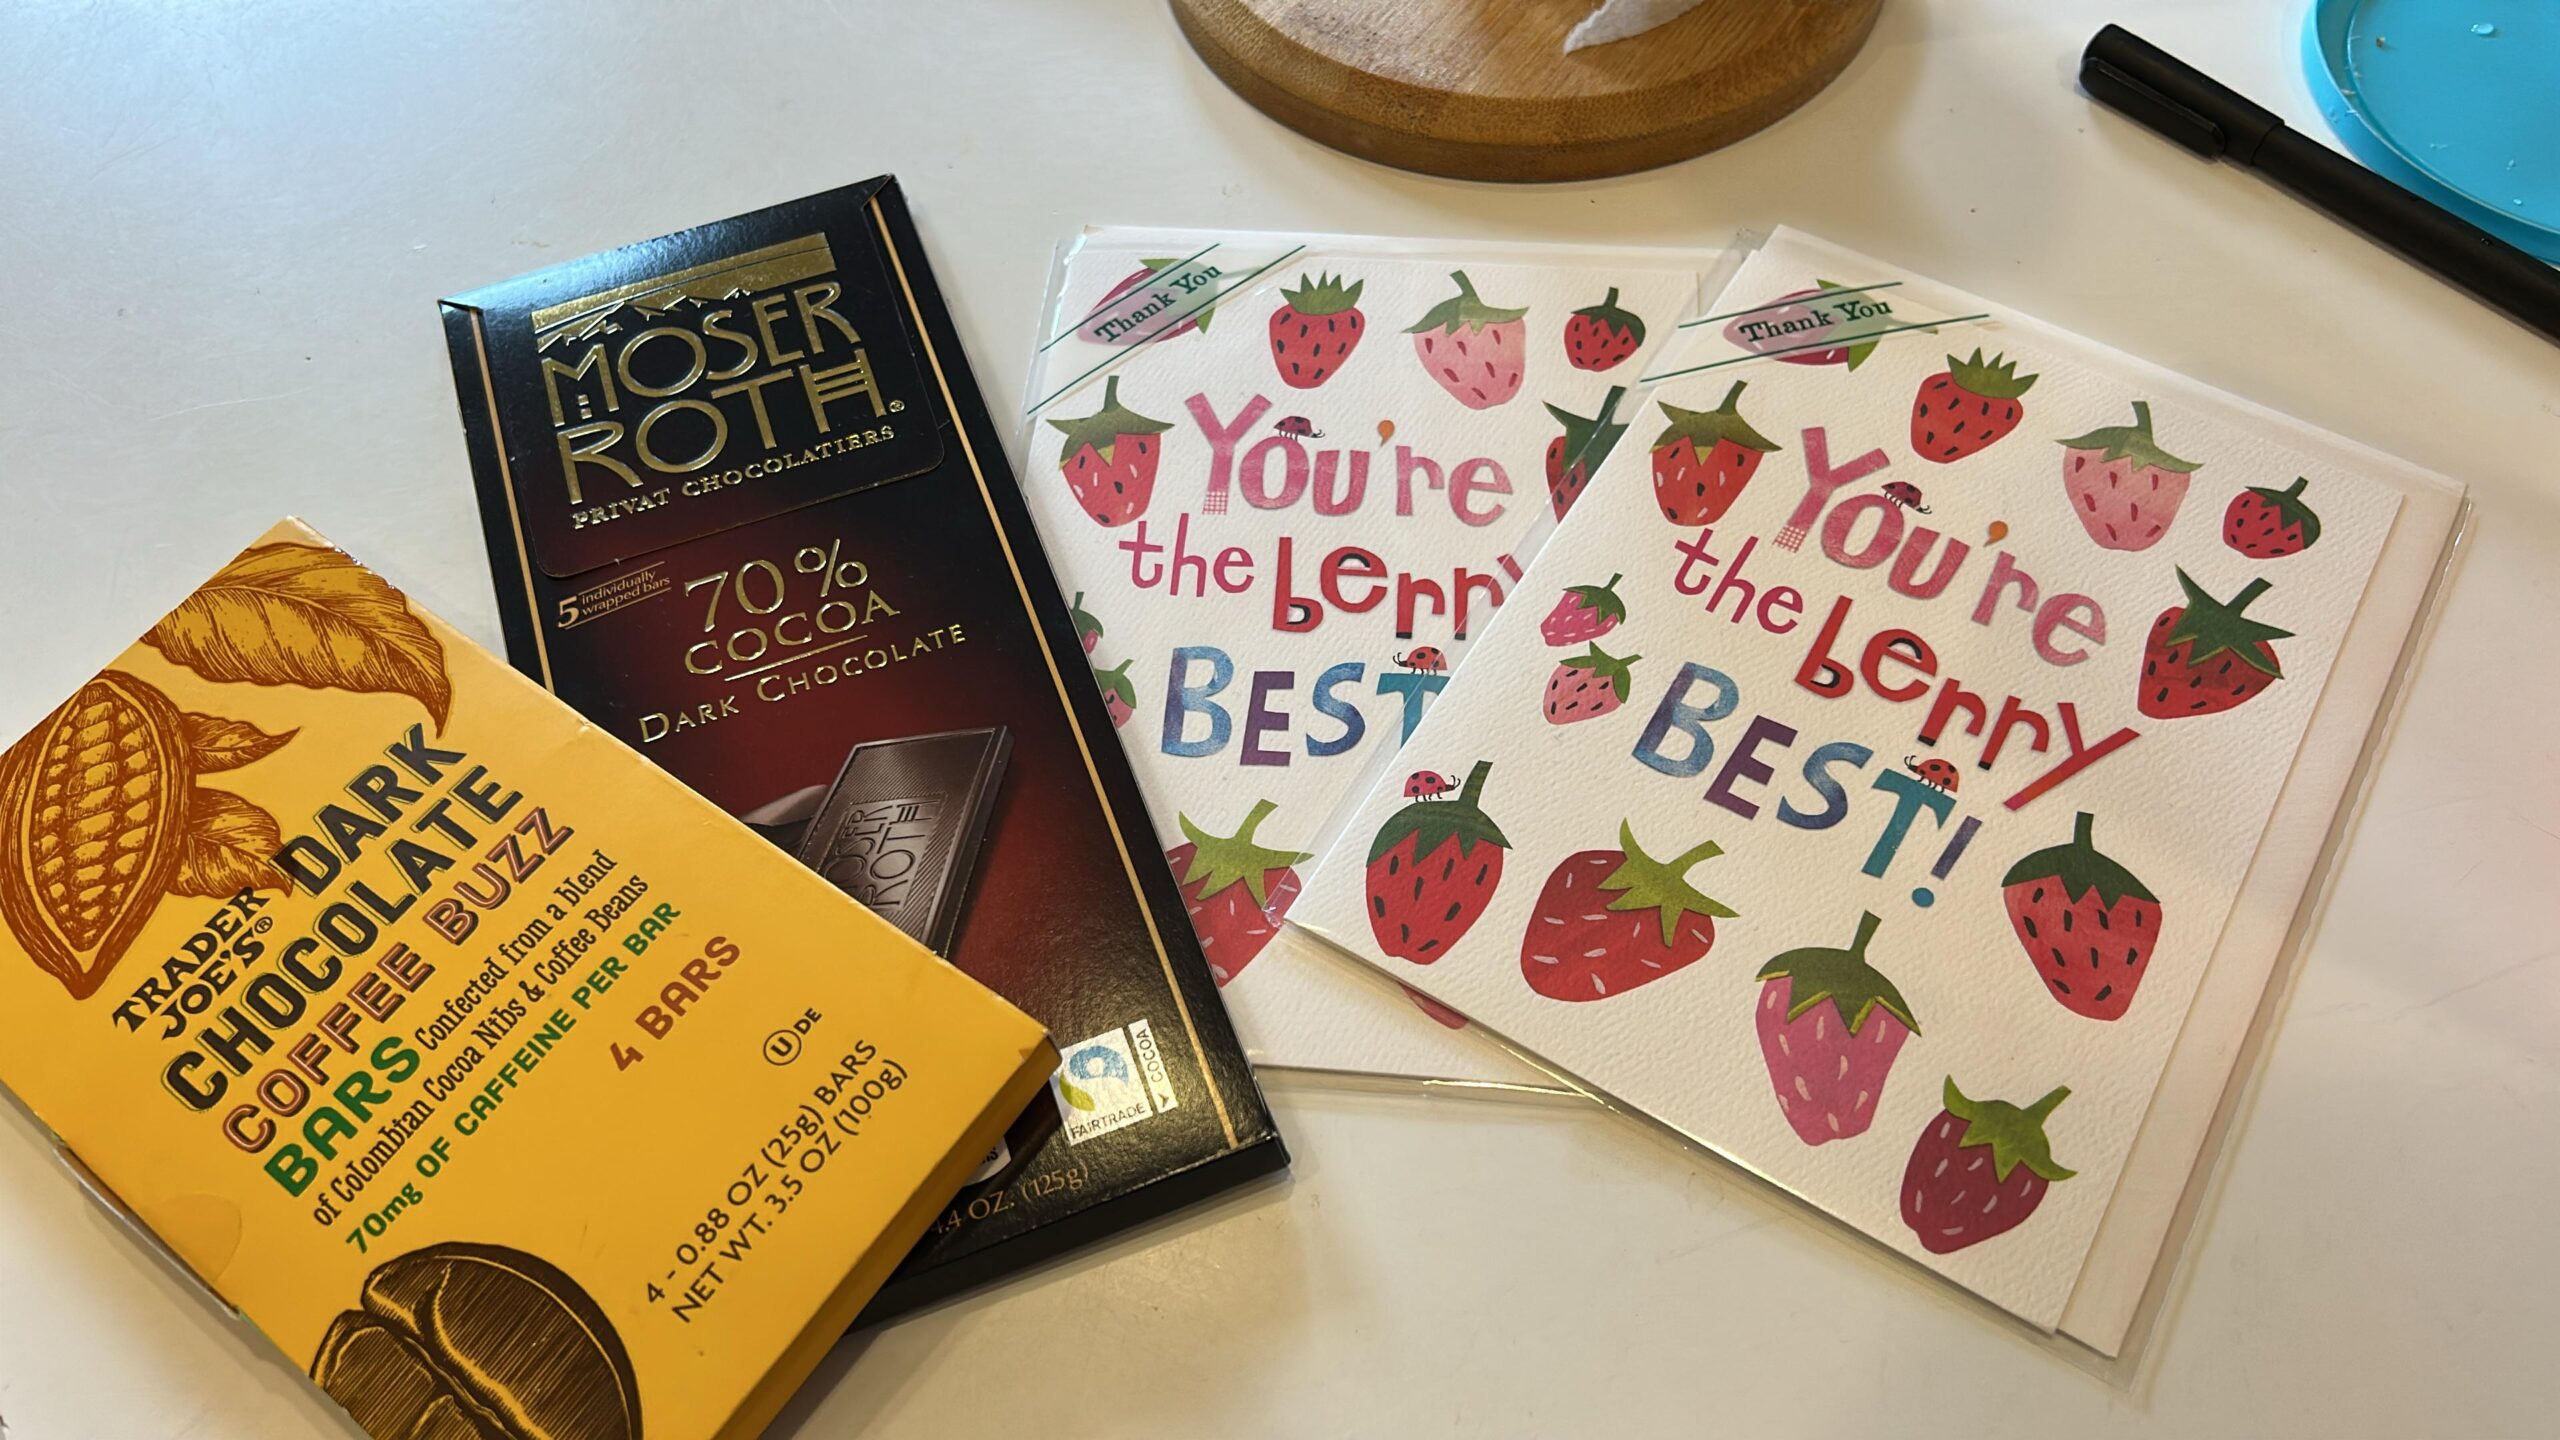 TRADER
JOE'S®
DARK
CHOCOLATE
COFFEE BUZZ
BARS Confected from a blend
of Colombian Cocoa Nibs & Coffee Beans
70mg OF CAFFEINE PER BAR
4 BARS
U DE
4 - 0.88 OZ (25g) BARS
NET WT. 3.5 OZ (100g)
MOSER
ROTH®
PRIVAT CHOCOLATIERS
5 individually
wrapped bars
70%
COCOA
DARK CHOCOLATE
MOSER
ROTH
FAIRTRADE
COCOA
4.4 OZ. (125g)
Thank You
You're
the berry
BEST
Thank You
You're
the berry
BEST!